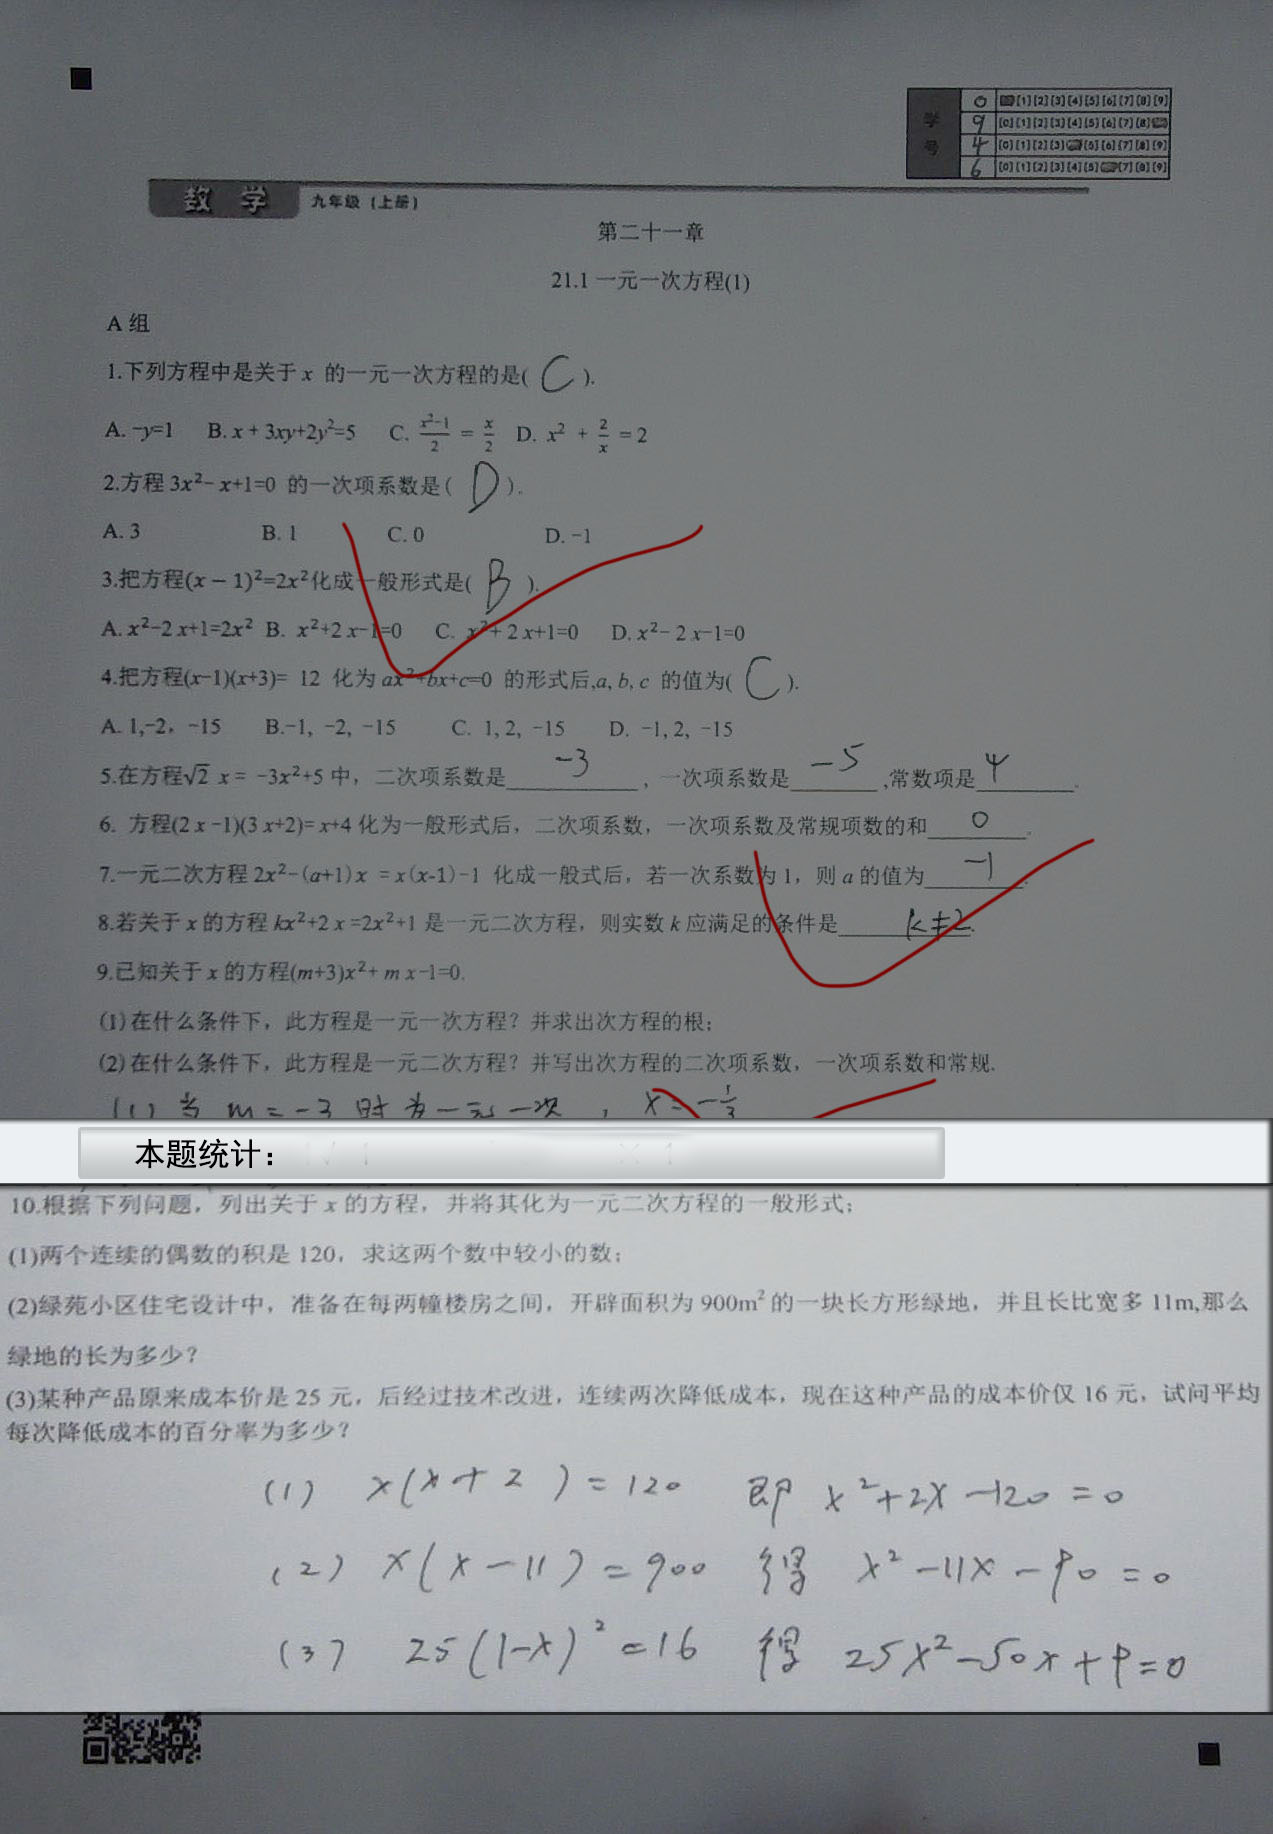 学号
0 [1][2][3][4][5][6][7][8][9]
9 [0][1][2][3][4][5][6][7][8]
4 [0][1][2][3][5][6][7][8][9]
6 [0][1][2][3][4][5][7][8][9]
数学 九年级(上册)
第二十一章
21.1 一元一次方程(1)
A 组
1.下列方程中是关于 x 的一元一次方程的是( C ).
A. -y=1 B. x + 3xy+2y²=5 C. (x²-1)/2 = x/2 D. x² + 2/x = 2
2.方程 3x²- x+1=0 的一次项系数是( D ).
A. 3 B. 1 C. 0 D. -1
3.把方程(x − 1)²=2x²化成一般形式是( B ).
A. x²-2 x+1=2x² B. x²+2 x-1=0 C. x²+ 2 x+1=0 D. x²- 2 x-1=0
4.把方程(x-1)(x+3)= 12 化为 ax²+bx+c=0 的形式后,a, b, c 的值为( C ).
A. 1,-2, -15 B.-1, -2, -15 C. 1, 2, -15 D. -1, 2, -15
5.在方程√2 x = -3x²+5 中，二次项系数是 -3 ，一次项系数是 -5 ,常数项是 4 .
6. 方程(2 x -1)(3 x+2)= x+4 化为一般形式后，二次项系数，一次项系数及常规项数的和 0 .
7.一元二次方程 2x²-(a+1)x = x(x-1)-1 化成一般式后，若一次系数为 1，则 a 的值为 -1 .
8.若关于 x 的方程 kx²+2 x =2x²+1 是一元二次方程，则实数 k 应满足的条件是 k≠2 .
9.已知关于 x 的方程(m+3)x²+ m x-1=0.
(1)在什么条件下，此方程是一元一次方程？并求出次方程的根；
(2)在什么条件下，此方程是一元二次方程？并写出次方程的二次项系数，一次项系数和常规.
(1) 当 m=-3 时为一元一次，x=-1/3
本题统计：
10.根据下列问题，列出关于 x 的方程，并将其化为一元二次方程的一般形式；
(1)两个连续的偶数的积是 120，求这两个数中较小的数；
(2)绿苑小区住宅设计中，准备在每两幢楼房之间，开辟面积为 900m² 的一块长方形绿地，并且长比宽多 11m,那么
绿地的长为多少？
(3)某种产品原来成本价是 25 元，后经过技术改进，连续两次降低成本，现在这种产品的成本价仅 16 元，试问平均
每次降低成本的百分率为多少？
(1) x(x+2)=120 即 x²+2x-120=0
(2) x(x-11)=900 得 x²-11x-90=0
(3) 25(1-x)²=16 得 25x²-50x+9=0